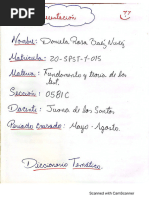 Presentación
77
1
Nombre: Daniela Rosa
Matricula: 20-SPST-1-015
Materia: Fundamento y teoria de los
Sección: 0581C
Docente: Juana de los Santos
Periodo cursado: Mayo-Agosto.
Diccionario Temático
Scanned with CamScanner